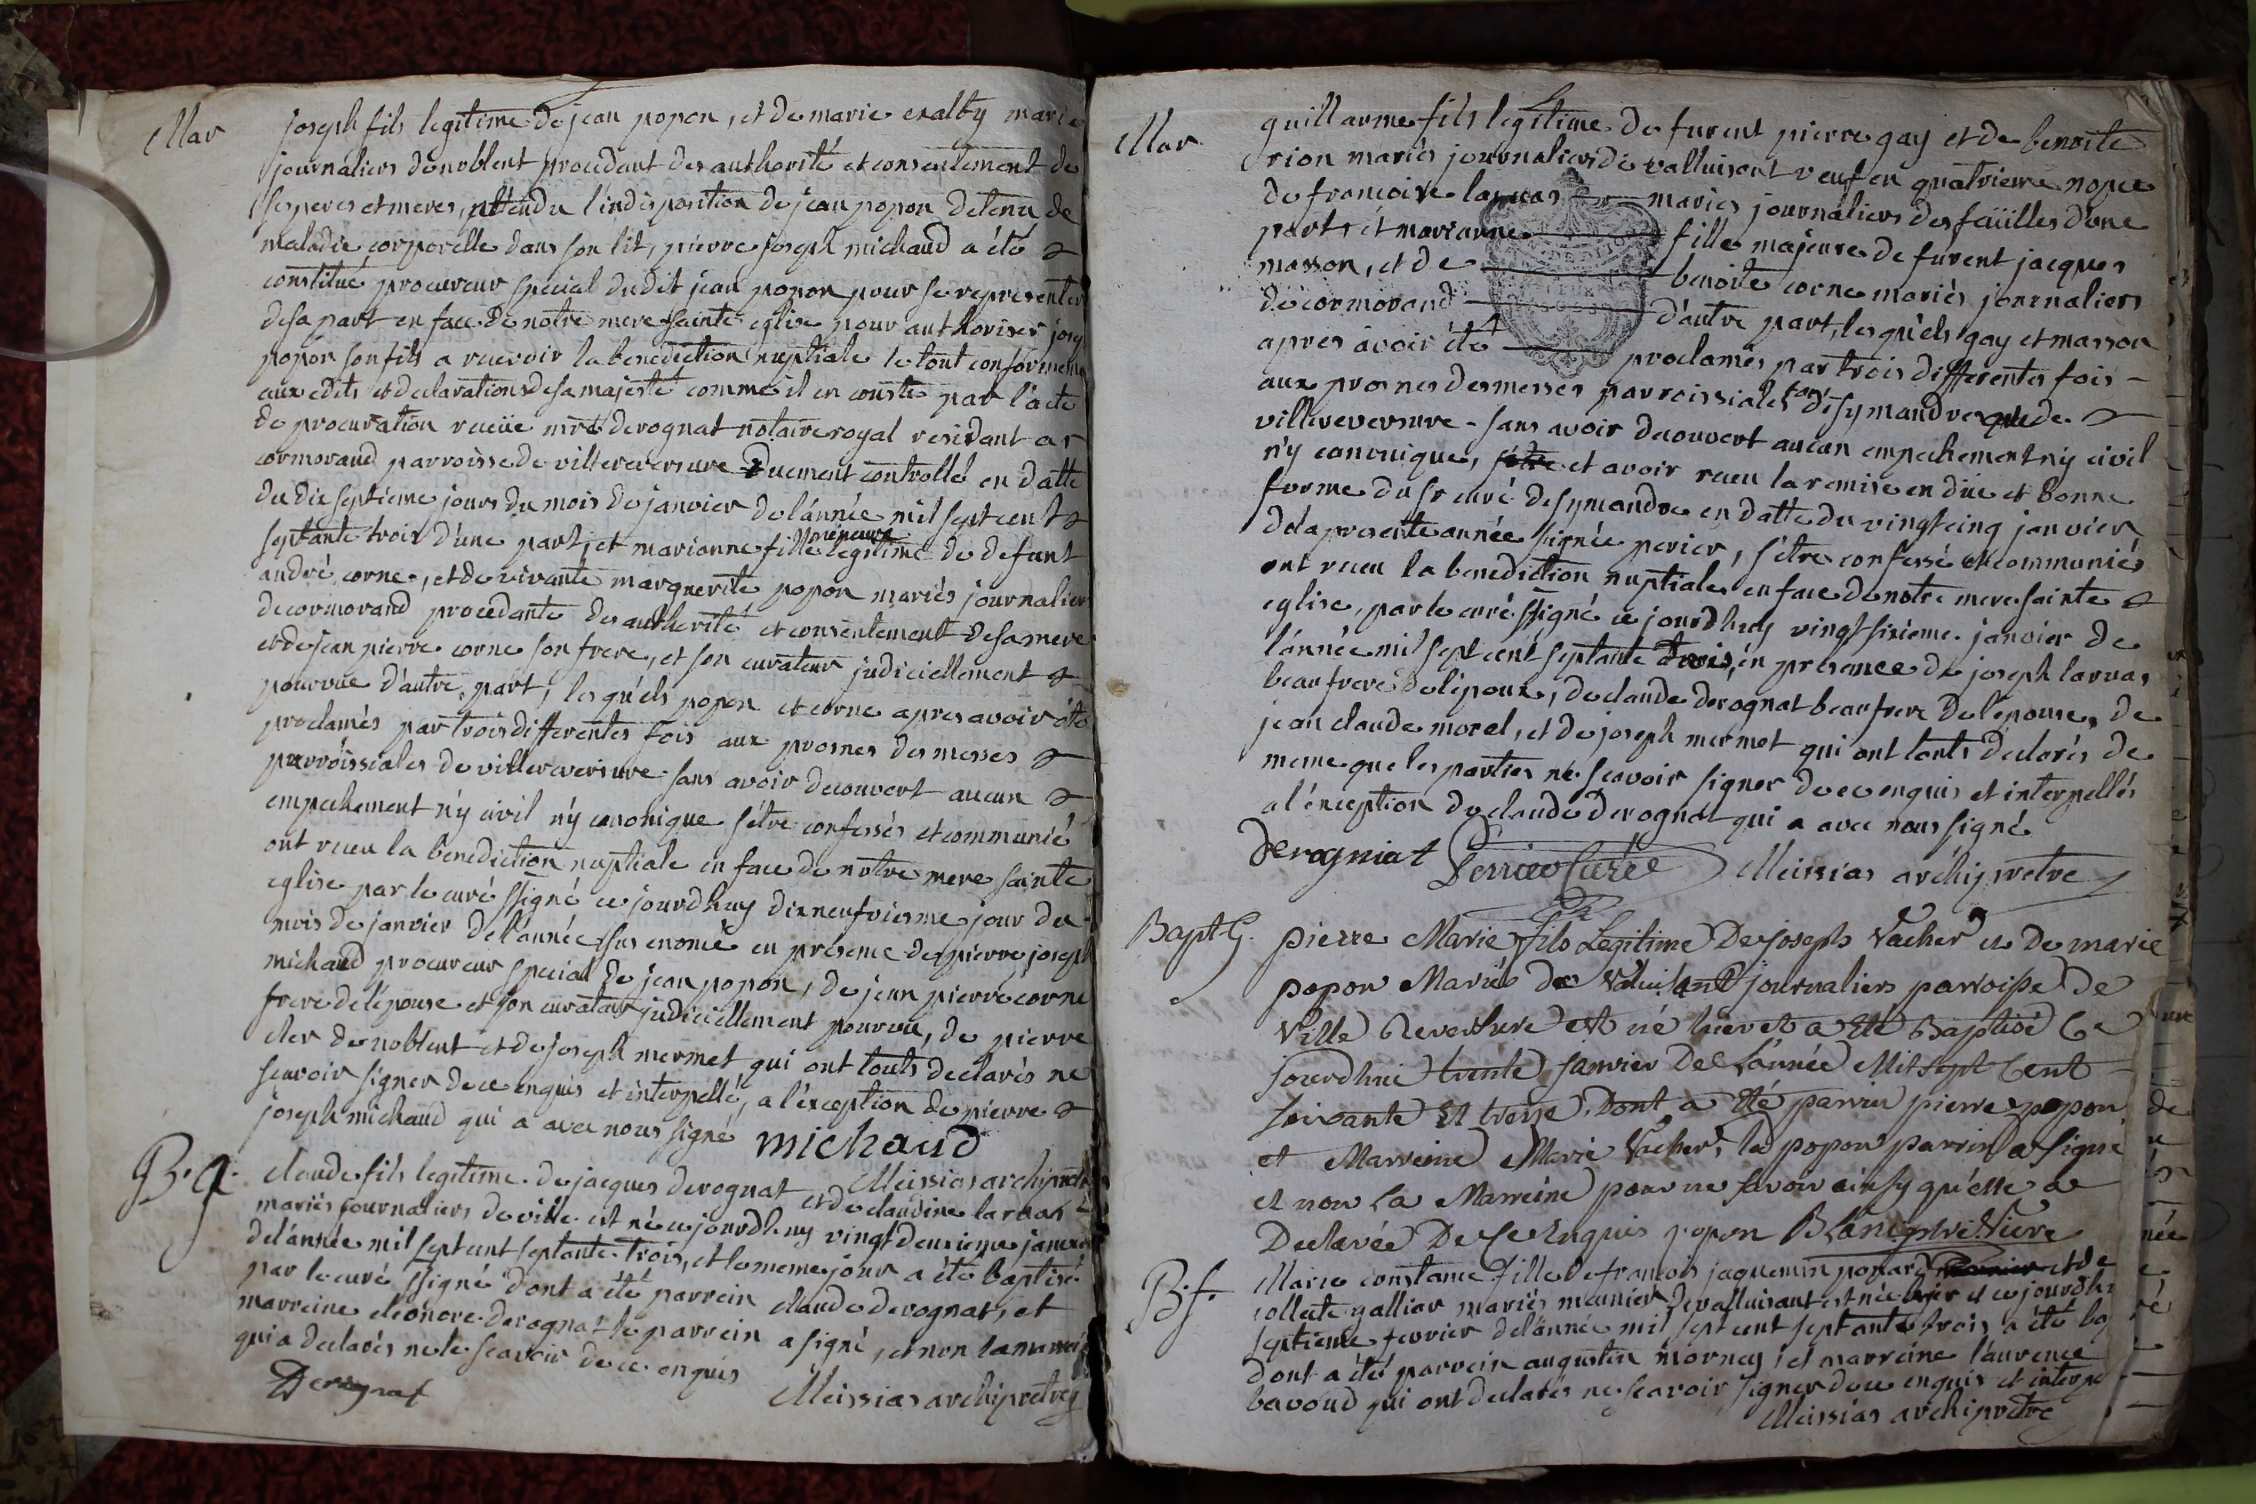 Mar
joseph fils legitime de jean popon, et de marie exalby marie
journaliers de noblent procedant des authorité et consentement de
ses peres et meres, attendu l'indisposition de jean popon detenu de
maladie corporelle dans son lit, pierre joseph michaud a été
constitué procureur special dudit jean popon pour se representer
de sa part en face de notre mere sainte eglise pour authoriser jose
popon son fils a recevoir la benediction nuptiale le tout conforméme
aux edits et declarations de sa majesté comme il en conste par l'acte
de procuration recüe mre derognat notaire royal residant a
cormorand parroisse de villereversure duement controllé en datte
du dix septieme jours du mois de janvier de l'année mil sept cent
septante trois d'une part, et marianne fille mineure legitime de defunt
andré corne, et de vivante marguerite popon mariés journaliers
de cormorand procedante des autherité et consentement de sa mere
et de jean pierre corne son frere, et son curateur judiciellement
pourvue d'autre part, les quels popon et corne apres avoir été
proclamés par trois differentes fois aux prosnes des messes
parroissiales de villereversure sans avoir decouvert aucun
empechement n'y civil n'y canonique s'être confessés et communié
ont recu la benediction nuptiale en face de notre mere sainte
eglise par le curé ssigné ce jourdhuy dixneufvieme jour du
mois de janvier de l'année sus enomé en presence de pierre joseph
michaud procureur special de jean popon, de jean pierre corne
frere de l'epouse et son curateur judiciellement pourvu, de pierre
cler de noblent et de joseph mermet qui ont touts declarés ne
scavoir signer de ce enquis et interpellé, a l'exception de pierre
joseph michaud qui a avec nous signé michaud
Meissias archipretre
B. g.
claude fils legitime de jacques derognat et de claudine laruas
mariés journaliers de ville est né ce jourdhuy vingt deuxieme janvier
de l'année mil sept cent septante trois, et le meme jour a été baptisé
par le curé ssigné dont a été parrein claude derognat, et
marreine eleonore derognat le parrein a signé, et non la marrei
qui a declarés ne le scavoir de ce enquis
Derognat Meissias archipretre
Mar
guillaume fils legitime de furent pierre gay et de benoite
rion mariés journaliers de valluisant veuf en quatrieme nopce
de francoise laruas mariés journaliers des feüilles d'une
part, et marianne fille majeure de furent jacques
masson, et de benoite corne mariés journaliers
de cormorand d'autre part, les quels gay et masson
apres avoir été proclamés par trois differentes fois
aux prosnes des messes parroissiales tant de symandre que de
villereversure sans avoir decouvert aucun empechement n'y civil
n'y canonique, et avoir recu la remise en düe et bonne
forme du sr curé de symandre en datte du vingt cinq janvier
de la presente année signée perier, s'être confessé et communiés
ont recu la benediction nuptiale en face de notre mere sainte
eglise, par le curé ssigné ce jourdhuy vingt sixieme janvier de
l'année mil sept cent septante trois, en presence de joseph laruas
beaufrere de l'epoux, de claude derognat beaufrere de l'epouse, de
jean claude morel, et de joseph mermet qui ont touts declarés de
meme que les parties ne scavoir signer de ce enquis et interpellés
a l'exception de claude derognat qui a avec nous signé
Derogniat Perrier Curé Meissias archipretre
Bapt. G.
pierre Marie fils Legitime De joseph Vacher et De marie
popon Mariés de Valuisant journaliers parroisse De
Ville Reversure est né hier et a Eté Baptisé Ce
jourdhui trente janvier De L'année Mil sept Cent
soixante Et treize, Dont a Eté parrin pierre popon
et Marreine Marie Vacher, le popon parrin a signé
et non La Marreine pour ne savoir ainsy qu'elle a
Declarée De Ce Enquis popon Blanc pre Vicre
B. f.
Marie constance fille de francois jaquemin ponard et de
collecte galliar mariés meunier de valluisant est née et ce jourdhu
septieme fevrier de l'année mil sept cent septante trois a été ba
dont a été parrein augustin mornay, et marreine laurence
bavoud qui ont declarés ne scavoir signer de ce enquis et interpe
Meissias archipretre